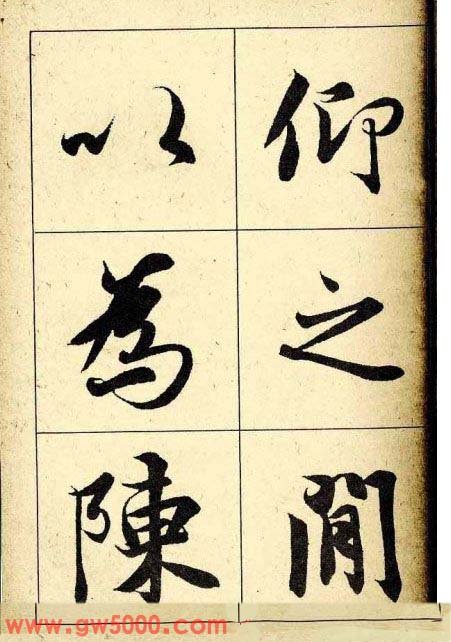 仰之間
以為陳
www.gw5000.com